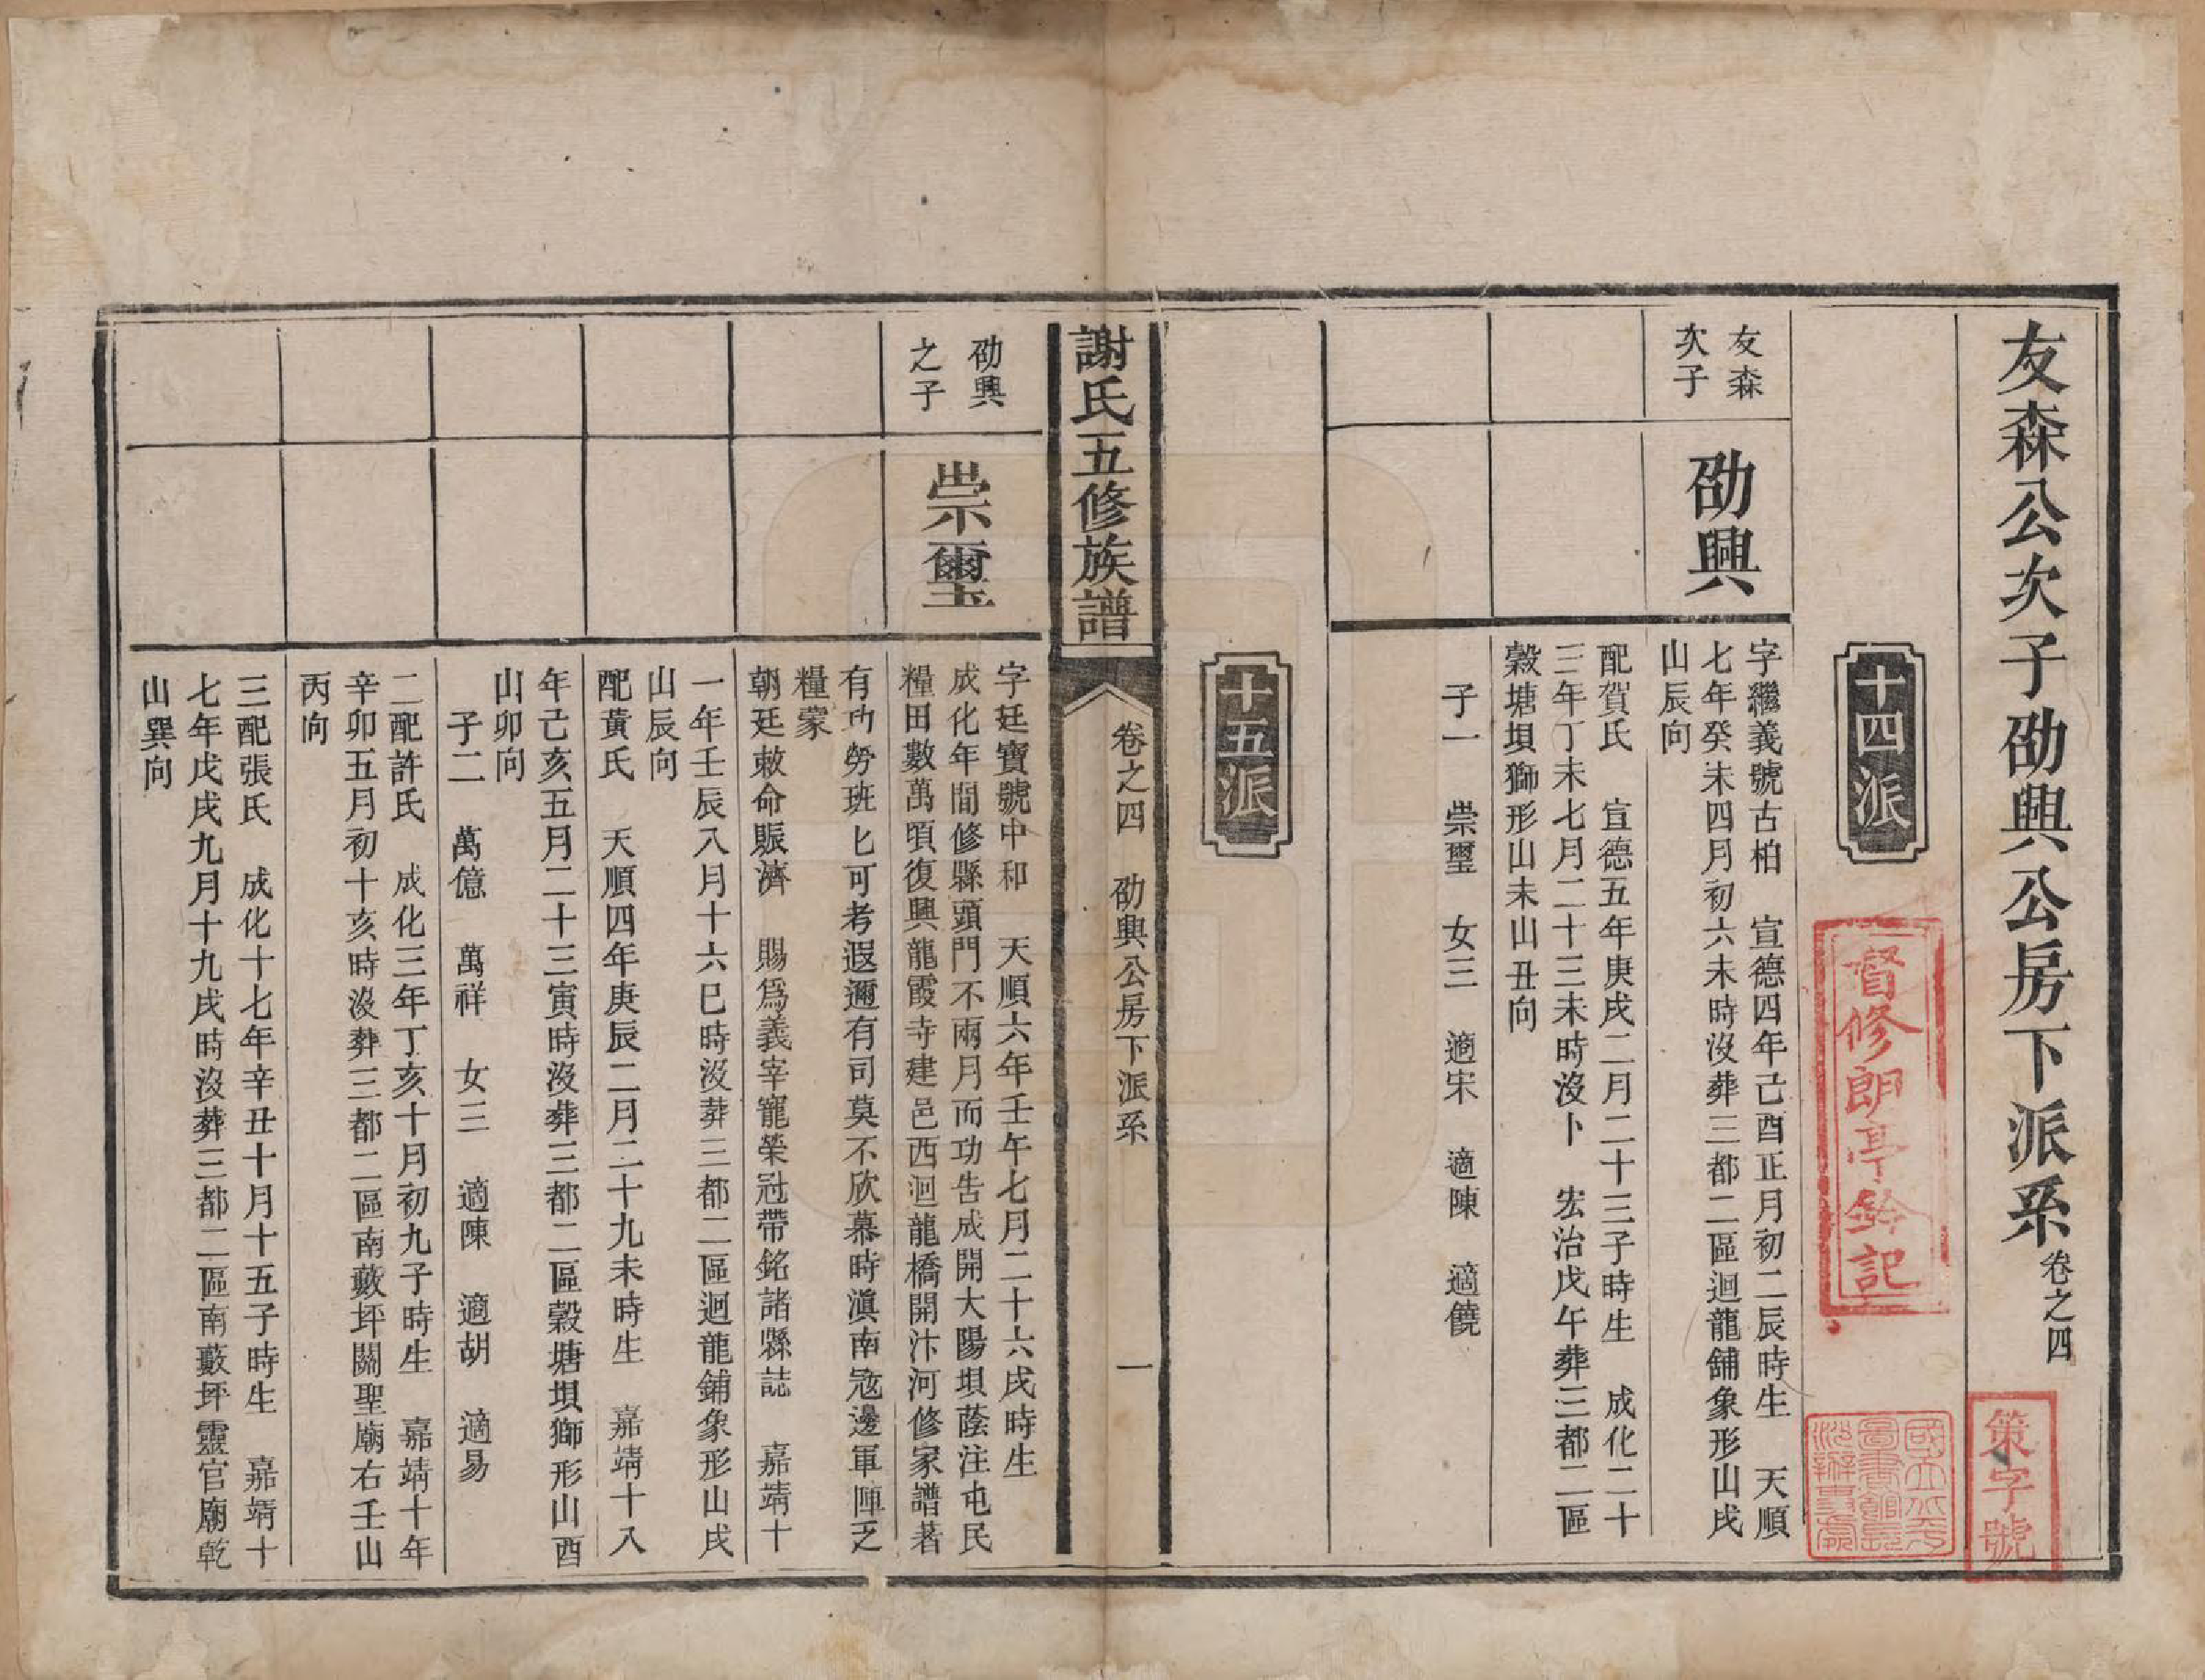 友森公次子劭興公房下派系卷之四
策字號
十四派
督修朗亭鈐記
友森
次子
劭興
字繼義號古柏　宣德四年己酉正月初二辰時生　天順
七年癸未四月初六未時沒葬三都二區迴龍舖象形山戌
山辰向
配賀氏　宣德五年庚戌二月二十三子時生　成化二十
三年丁未七月二十三未時沒卜　宏治戊午葬三都二區
穀塘垻獅形山未山丑向
子一　崇璽　女三　適宋　適陳　適饒
十五派
謝氏五修族譜
卷之四　劭興公房下派系
一
劭興
之子
崇璽
字廷寶號中和　天順六年壬午七月二十六戌時生
成化年間修縣頭門不兩月而功告成開大陽垻蔭注屯民
糧田數萬頃復興龍霞寺建邑西迴龍橋開汴河修家譜著
有功勞班匕可考遐邇有司莫不欣慕時滇南寇邊軍陣乏
糧蒙
朝廷敕命賑濟　賜爲義宰寵榮冠帶銘諸縣誌　嘉靖十
一年壬辰八月十六巳時沒葬三都二區迴龍舖象形山戌
山辰向
配黃氏　天順四年庚辰二月二十九未時生　嘉靖十八
年己亥五月二十三寅時沒葬三都二區穀塘垻獅形山酉
山卯向
子二　萬億　萬祥　女三　適陳　適胡　適易
二配許氏　成化三年丁亥十月初九子時生　嘉靖十年
辛卯五月初十亥時沒葬三都二區南藪坪關聖廟右壬山
丙向
三配張氏　成化十七年辛丑十月十五子時生　嘉靖十
七年戊戌九月十九戌時沒葬三都二區南藪坪靈官廟乾
山巽向